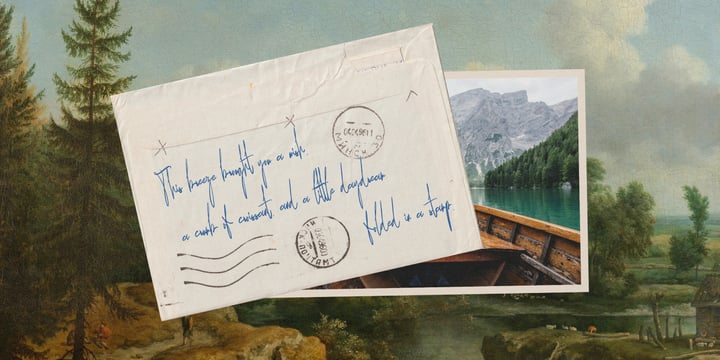 This breeze brought you a wish
a crumb of croissant, and a little daydream
folded in a stamp.
МИНСК
ПОЧТАМТ